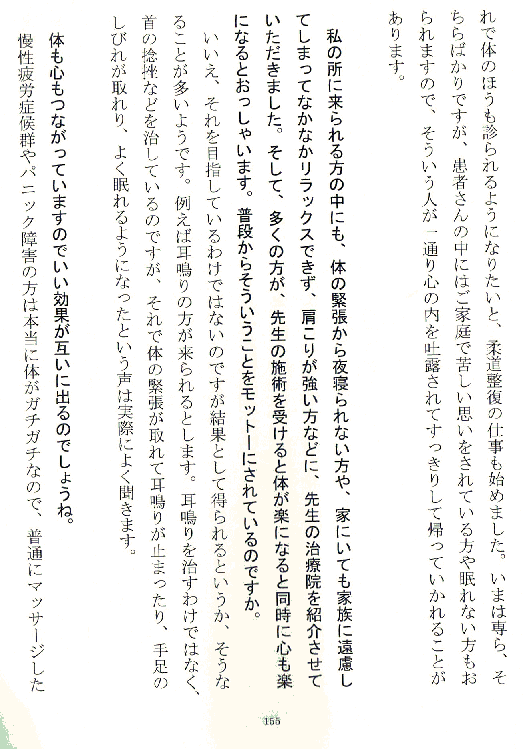 れで体のほうも診られるようになりたいと、柔道整復の仕事も始めました。いまは専ら、そ
ちらばかりですが、患者さんの中にはご家庭で苦しい思いをされている方や眠れない方もお
られますので、そういう人が一通り心の内を吐露されてすっきりして帰っていかれることが
あります。
私の所に来られる方の中にも、体の緊張から夜寝られない方や、家にいても家族に遠慮し
てしまってなかなかリラックスできず、肩こりが強い方などに、先生の治療院を紹介させて
いただきました。そして、多くの方が、先生の施術を受けると体が楽になると同時に心も楽
になるとおっしゃいます。普段からそういうことをモットーにされているのですか。
いいえ、それを目指しているわけではないのですが結果として得られるというか、そうな
ることが多いようです。例えば耳鳴りの方が来られるとします。耳鳴りを治すわけではなく、
首の捻挫などを治しているのですが、それで体の緊張が取れて耳鳴りが止まったり、手足の
しびれが取れり、よく眠れるようになったという声は実際によく聞きます。
体も心もつながっていますのでいい効果が互いに出るのでしょうね。
慢性疲労症候群やパニック障害の方は本当に体がガチガチなので、普通にマッサージした
155